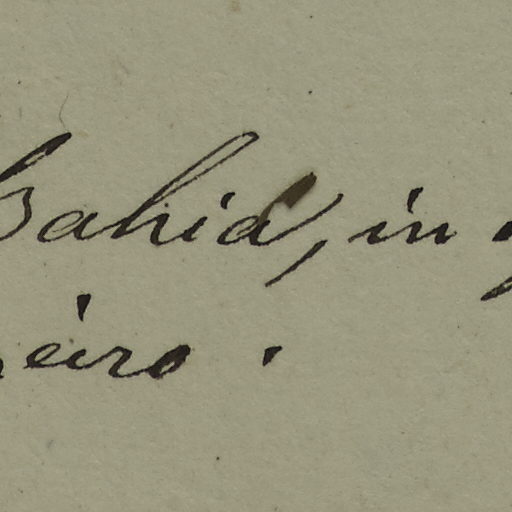 Bahia, in
eiro.